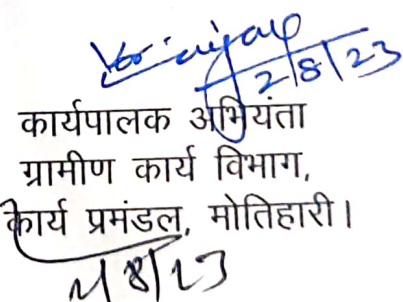 2/8/23
कार्यपालक अभियंता
ग्रामीण कार्य विभाग,
कार्य प्रमंडल, मोतिहारी।